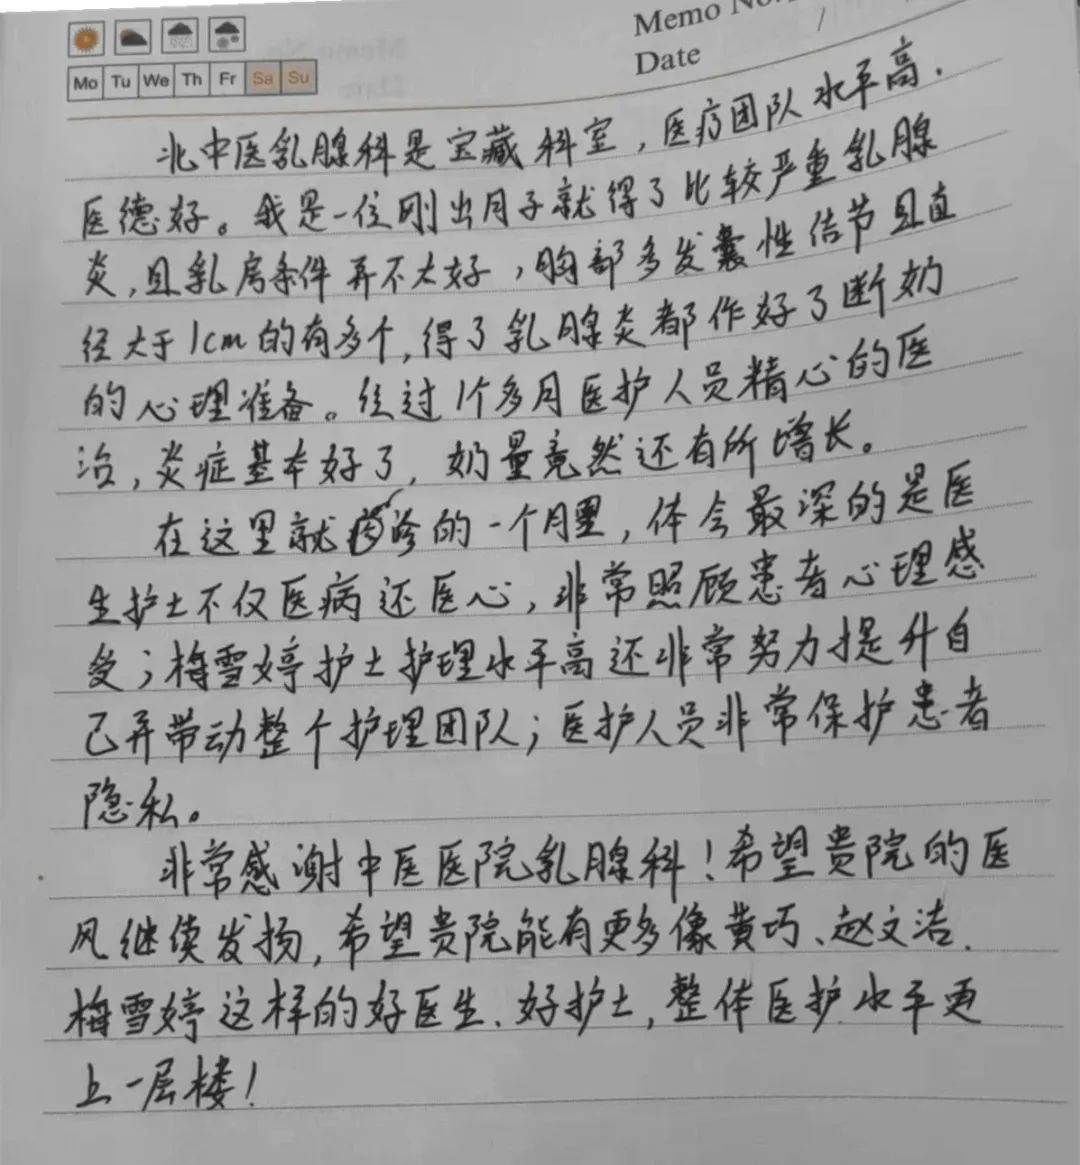 Memo No.
Date /
Mo Tu We Th Fr Sa Su
北中医乳腺科是宝藏科室，医疗团队水平高.
医德好。我是一位刚出月子就得了比较严重乳腺
炎，且乳房条件并不太好，胸部多发囊性结节且直
径大于1cm的有多个，得了乳腺炎都作好了断奶
的心理准备。经过1个多月医护人员精心的医
治，炎症基本好了，奶量竟然还有所增长。
在这里就诊的一个月里，体会最深的是医
生护士不仅医病还医心，非常照顾患者心理感
受；梅雪婷护士护理水平高还非常努力提升自
己并带动整个护理团队；医护人员非常保护患者
隐私。
非常感谢中医医院乳腺科！希望贵院的医
风继续发扬，希望贵院能有更多像黄巧、赵文洁、
梅雪婷这样的好医生、好护士，整体医护水平更
上一层楼！